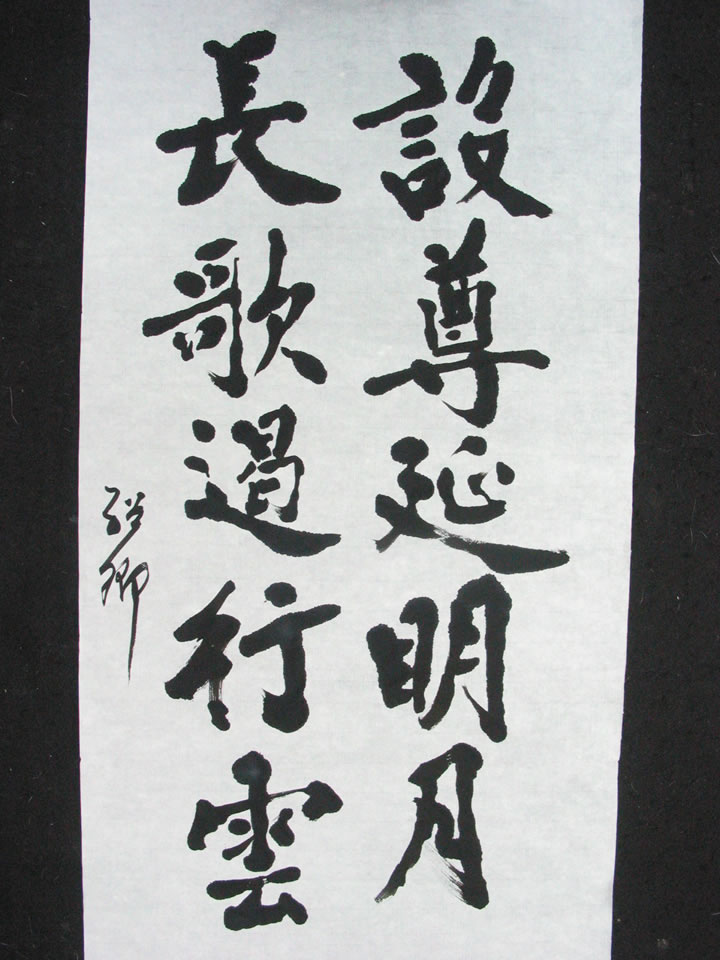 設尊延明月
長歌遏行雲